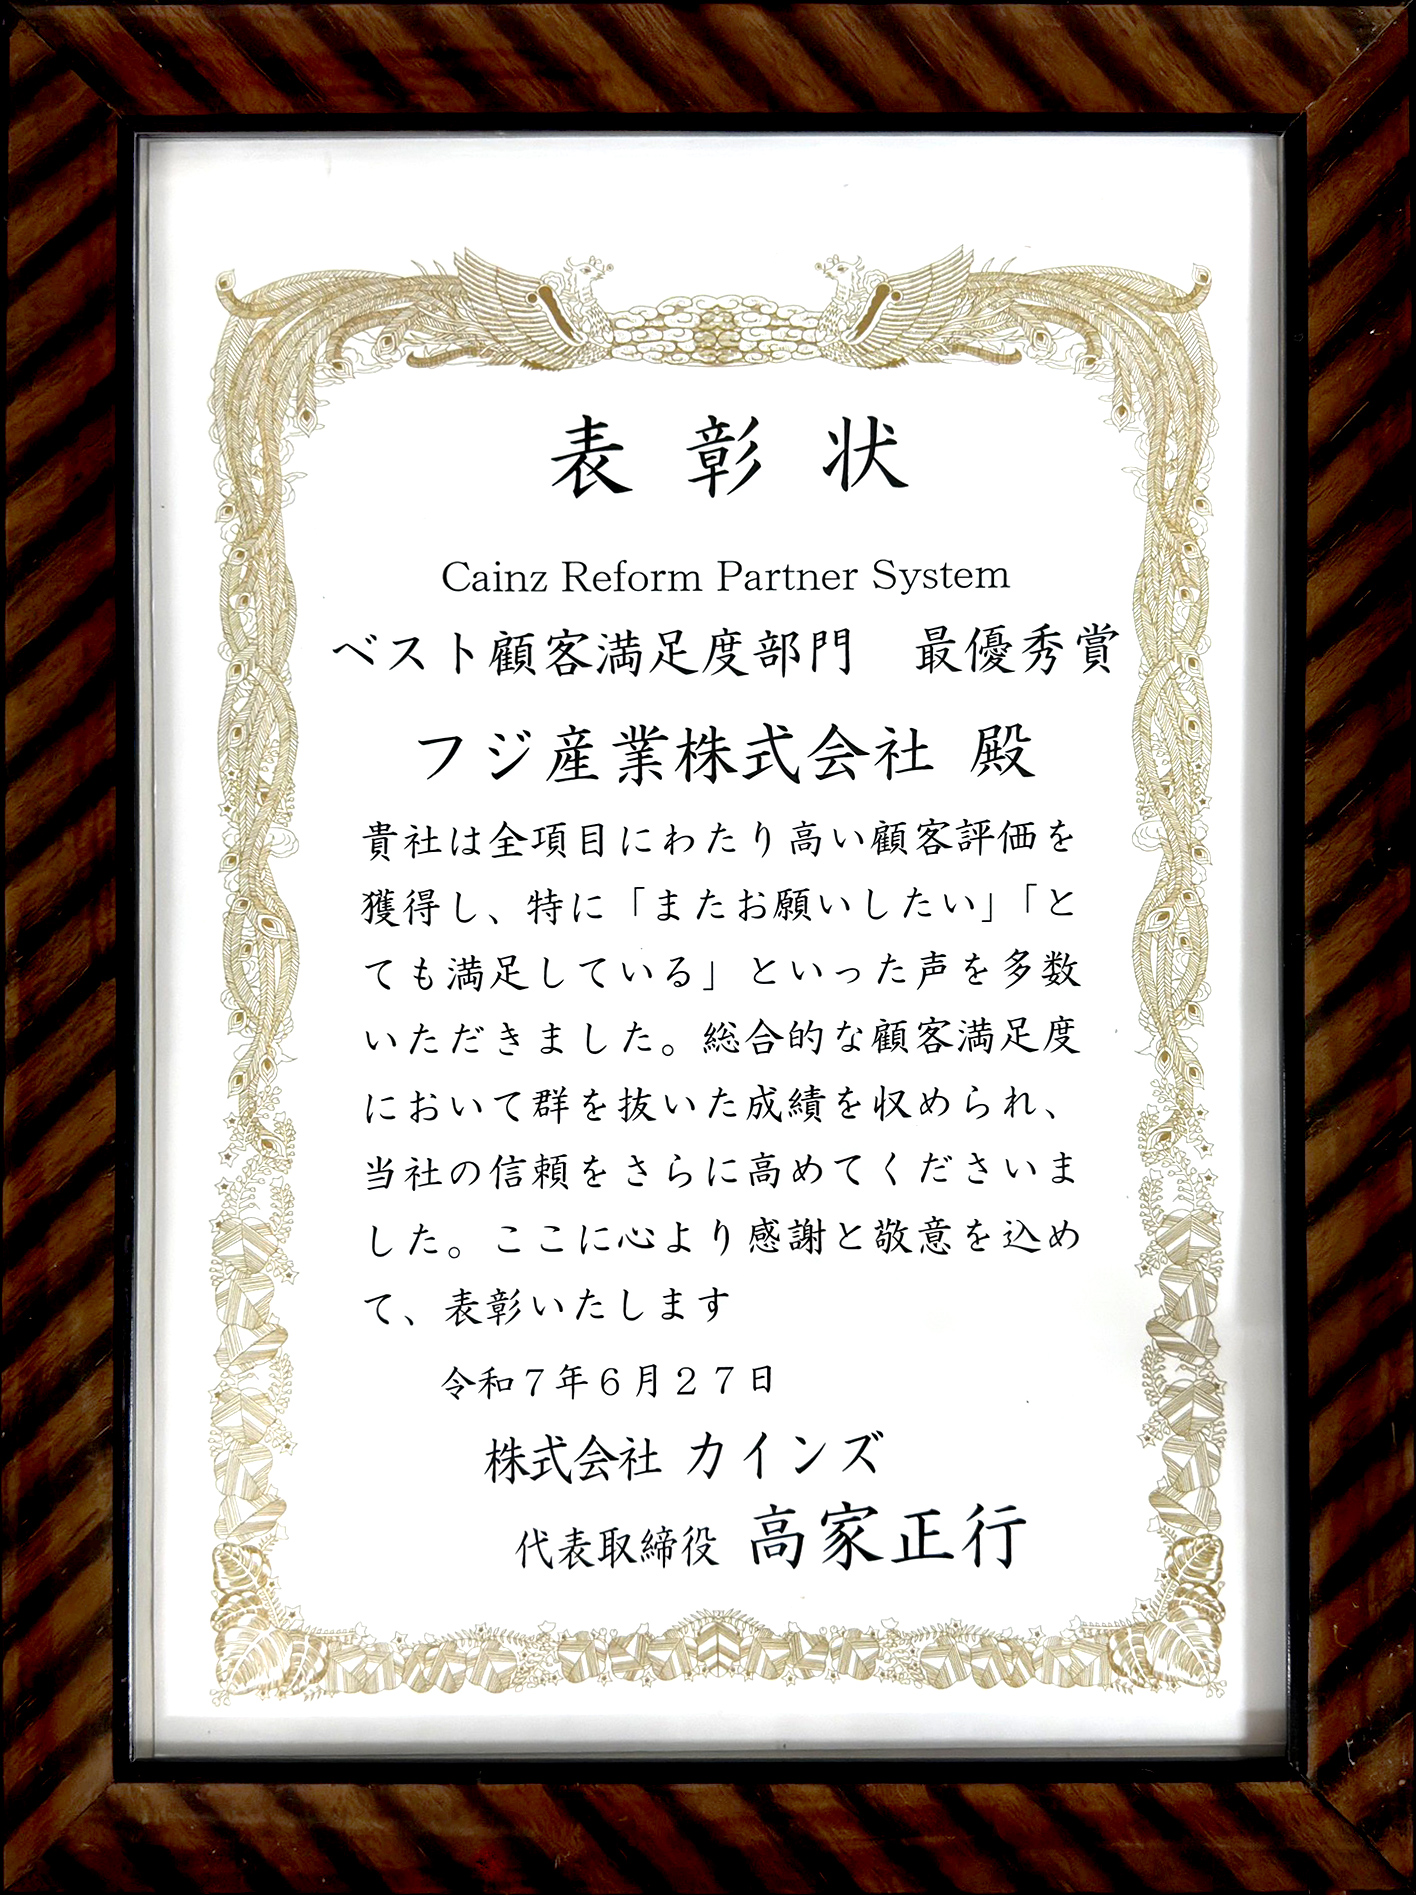 表彰状
Cainz Reform Partner System
ベスト顧客満足度部門　最優秀賞
フジ産業株式会社 殿
貴社は全項目にわたり高い顧客評価を
獲得し、特に「またお願いしたい」「と
ても満足している」といった声を多数
いただきました。総合的な顧客満足度
において群を抜いた成績を収められ、
当社の信頼をさらに高めてくださいま
した。ここに心より感謝と敬意を込め
て、表彰いたします
令和７年６月２７日
株式会社 カインズ
代表取締役 高家正行